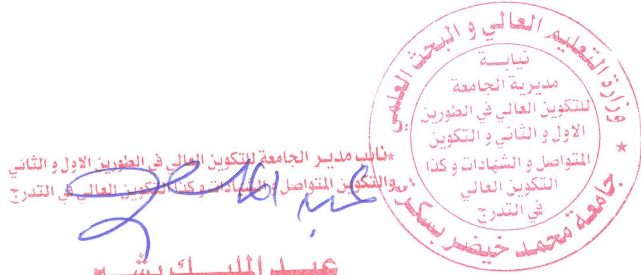 وزارة التعليم العالي و البحث العلمي
نيابة
مديرية الجامعة
للتكوين العالي في الطورين
الاول و الثاني و التكوين
المتواصل و الشهادات و كذا
التكوين العالي
في التدرج
جامعة محمد خيضر بسكرة
*نائب مدير الجامعة للتكوين العالي في الطورين الاول و الثاني
والتكوين المتواصل و الشهادات وكذا التكوين العالي في التدرج
عبد الملك بشير